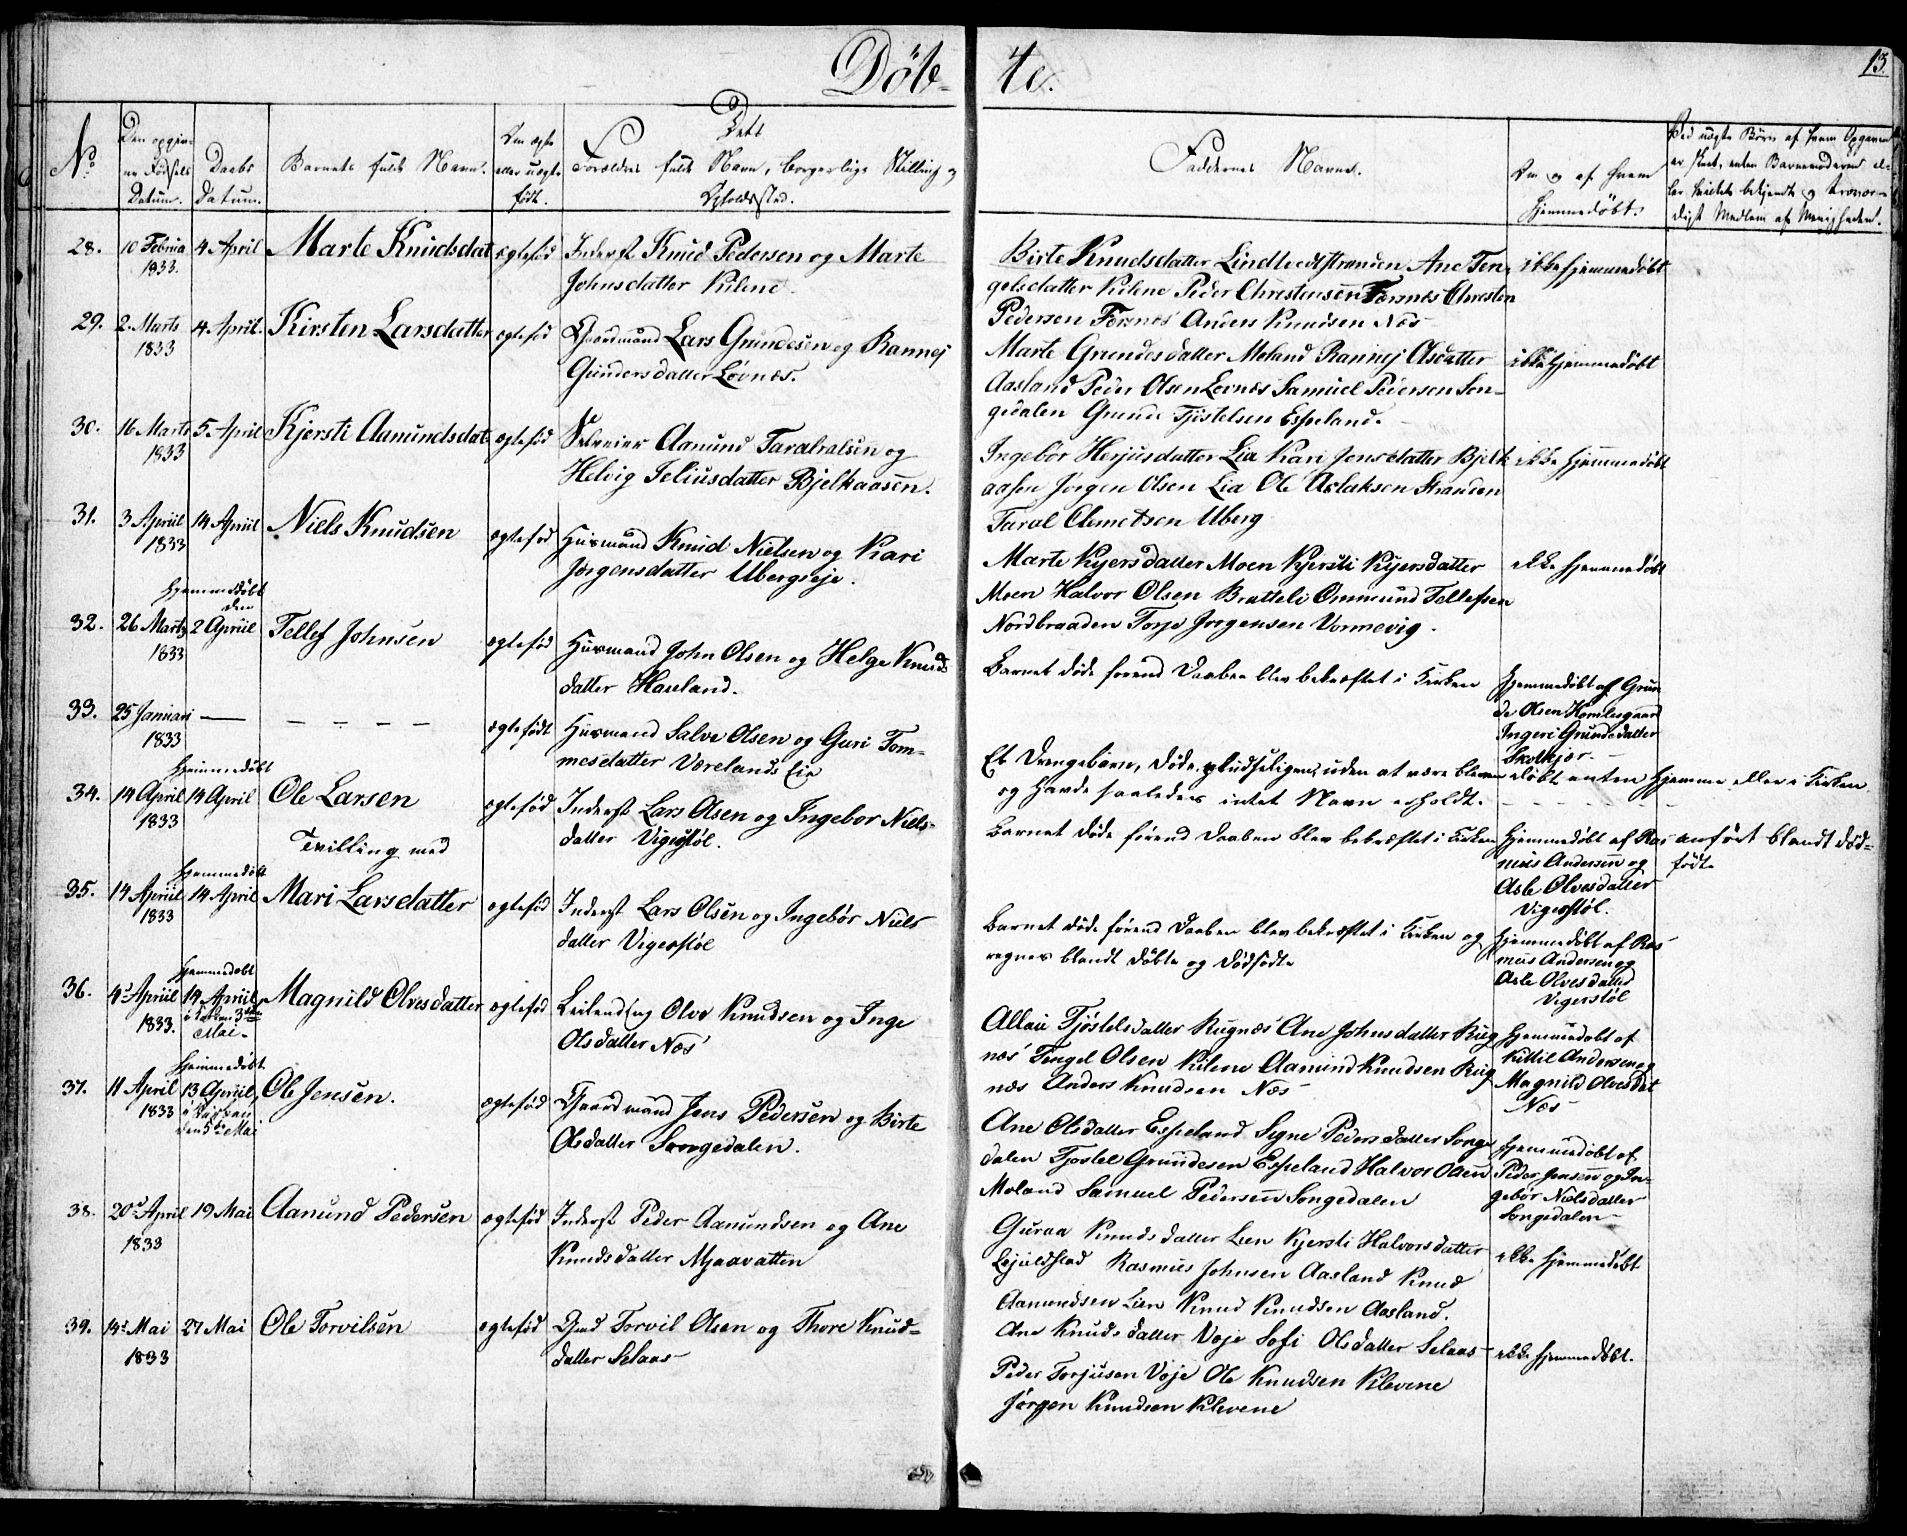 Døb- te.
13.
No.
Den opgiv-
ne Fødsels
Datum.
Daabs
Datum.
Barnets fulde Navn.
Om ægte
eller uægte
født.
Dets
Forældres fulde Navn, borgerlige Stilling og
Opholdssted.
Faddernes Navne.
Om og af hvem
hjemmedøbt.
Ved uægte Børn af hvem Opgaven
er skeet, enten Barnemoderen el-
ler
digt Medlem af Menigheden.
28. 10 Februa 4 April Marte Knudsdat ægtefød Inderst Knud Pedersen og Marte
1833.
Johnsdatter Kilene.
Birte Knudsdatter Lindtvedtstranden Ane Ten-
gelsdatter Kilene Peder Christensen Forsnes Christen
Pedersen Forsnes Anders Knudsen Næs
ikke hjemmedøbt
29. 2. Marts 4. April. Kirsten Larsdatter ægtefød Gaardmand Lars Grundesen og Rannej
1833
Gundersdatter Løvnæs.
Marte Grundesdatter Moland Rannej Olsdatter
Aasland Peder Olsen Levnæs Samuel Pedersen Son-
gedalen Grunde Tjøstelsen Espeland.
ikke hjemmedøbt
30. 16 Marts 5. April Kjersti Aanundsdat. ægtefød Selveier Aanund Taraldsen og
1833
Helvig Jeliusdatter Bjelkaasen.
Ingebor Herjusdatter Lia Kari Jensdatter Bjelk
aasen Jørgen Olsen Lia Ole Aslaksen Stranden
Taral Clemetsen Uberg
ikke hjemmedøbt
31. 3 April 14 April Niels Knudsen ægtefød Husmand Knud Nielsen og Kari
1833
Jørgensdatter Ubergseje.
Marte Kjersdatter Moen Kjersti Kjersdatter
Moen Halvor Olsen Bratteli Ommund Tellefsen
Nordbraaden Torje Jørgensen Vormevig.
ikke hjemmedøbt
hjemmedøbt
den
32. 26 Marts 2 April Tellef Johnsen ægtefød Husmand John Olsen og Helge Knuds
1833
datter Haseland.
Barnet døde forend Daaben blev bekræftet i Kirken
hjemmedøbt af Grun
de Olsen Homlesgaard
Ingeri Grundsdatter
Skolkjær.
33. 25 Januari — — — — — ægtefødt Husmand Salve Olsen og Guri Tom-
1833
mesdatter Værelands Eie
Et Drengebarn, døde pludseligen, uden at være bleven døbt enten hjemme eller i Kirken
og havde saaledes intet Navn erholdt.
hjemmedøbt
34. 14 April 14 April Ole Larsen ægtefød Inderst Lars Olsen og Ingebor Niels-
1833
datter Vigerstøl.
Tvilling med
Barnet døde førend Daaben blev bekræftet i Kirken
hjemmedøbt af Ras
mus Andersen og
Asle Olvesdatter
Vigerstøl.
anført blandt død-
fødte
hjemmedøbt
35. 14 April 14 April Mari Larsdatter ægtefød Inderst Lars Olsen og Ingebør Niels
1833
datter Vigerstøl
Barnet døde førend Daaben blev bekræftet i Kirken og
regnes blandt døbte og dødfødte
hjemmedøbt af Ras
mus Andersen og
Asle Olvesdatter
Vigerstøl
hjemmedøbt
36. 4de April 14 April Magnild Olvesdatter ægtefød Leilending Olve Knudsen og Inge
1833.
i Kirken 3die
Mai
Olsdatter Næs
Allau Tjøstelsdatter Rugnæs Ane Johnsdatter Rug
næs Tengel Olsen Kilene Aamund Knudsen Rug
næs Anders Knudsen Næs
hjemmedøbt af
Kittil Andersen og
Magnild Olvesdat
Næs
hjemmedøbt
37. 11 April 13 April, Ole Jensen. ægtefød Gaardmand Jens Pedersen og Birte
1833
i Kirken
den 5te Mai
Olsdatter Songedalen.
Ane Olsdatter Espeland Signe Pedersdatter Songe
dalen Tjostel Grundesen Espeland Halvor Olsen
Moland Samuel Pedersen Songedalen
hjemmedøbt af
Peder Jensen og In-
gebør Nielsdatter
Songedalen
38. 20de April 19 Mai Aanund Pedersen ægtefød Inderst Peder Aanundsen og Ane
1833
Knudsdatter Mjaavatten
Guraa Knudsdatter Lien Kjersti Halvorsdatter
Rasmus Johnsen Aasland Knud
Aamundsen Lien Knud Knudsen Aasland.
ikke hjemmedøbt
39. 14de Mai 27 Mai Ole Torvilsen ægtefød Gmd Torvil Olsen og Thore Knud-
1833
datter Selaas
Ane Knudsdatter Voje Sofi Olsdatter Selaas
Peder Torjusen Voje Ole Knudsen Klevene
Jørgen Knudsen Klevene
ikke hjemmedøbt.